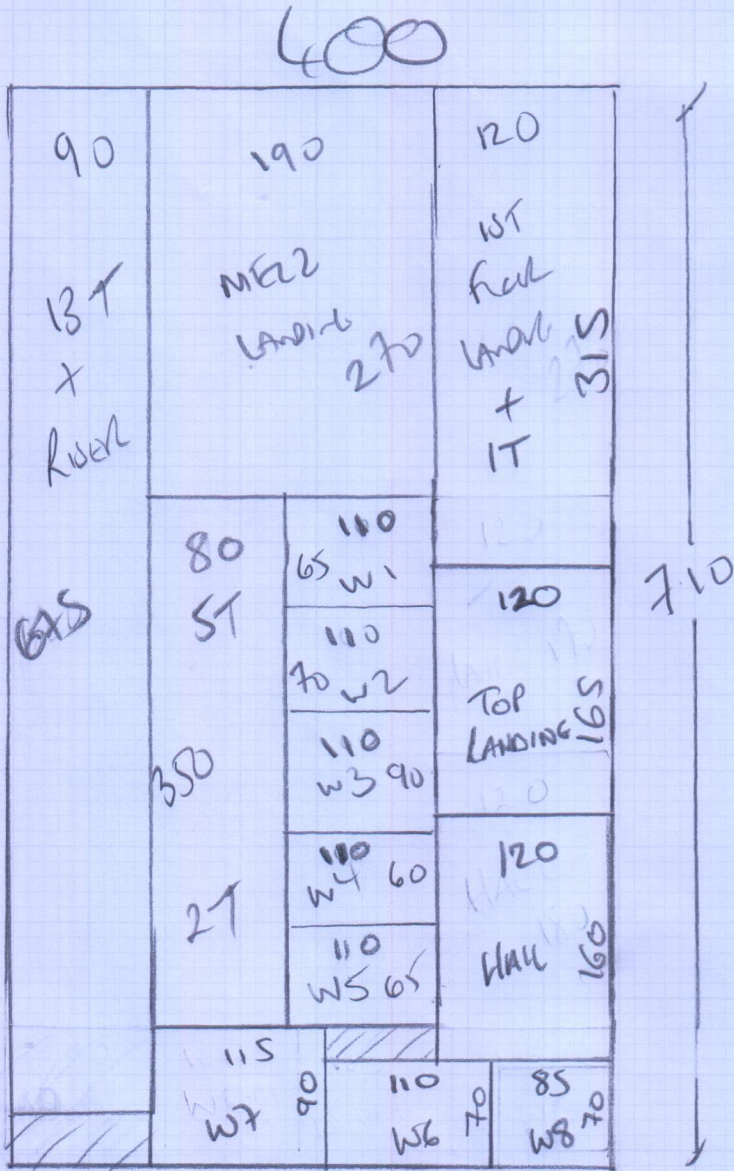 400
90
13T
+
RISER
675
190
MEZZ
LANDING
270
120
1ST
FLOOR
LANDING
+
1T
315
710
80
5T
350
2T
110
65 W1
110
70 W2
110
W3 90
110
W4 60
110
W5 65
120
TOP
LANDING
165
120
HALL
160
115
W7
90
110
W6
70
85
W8
70